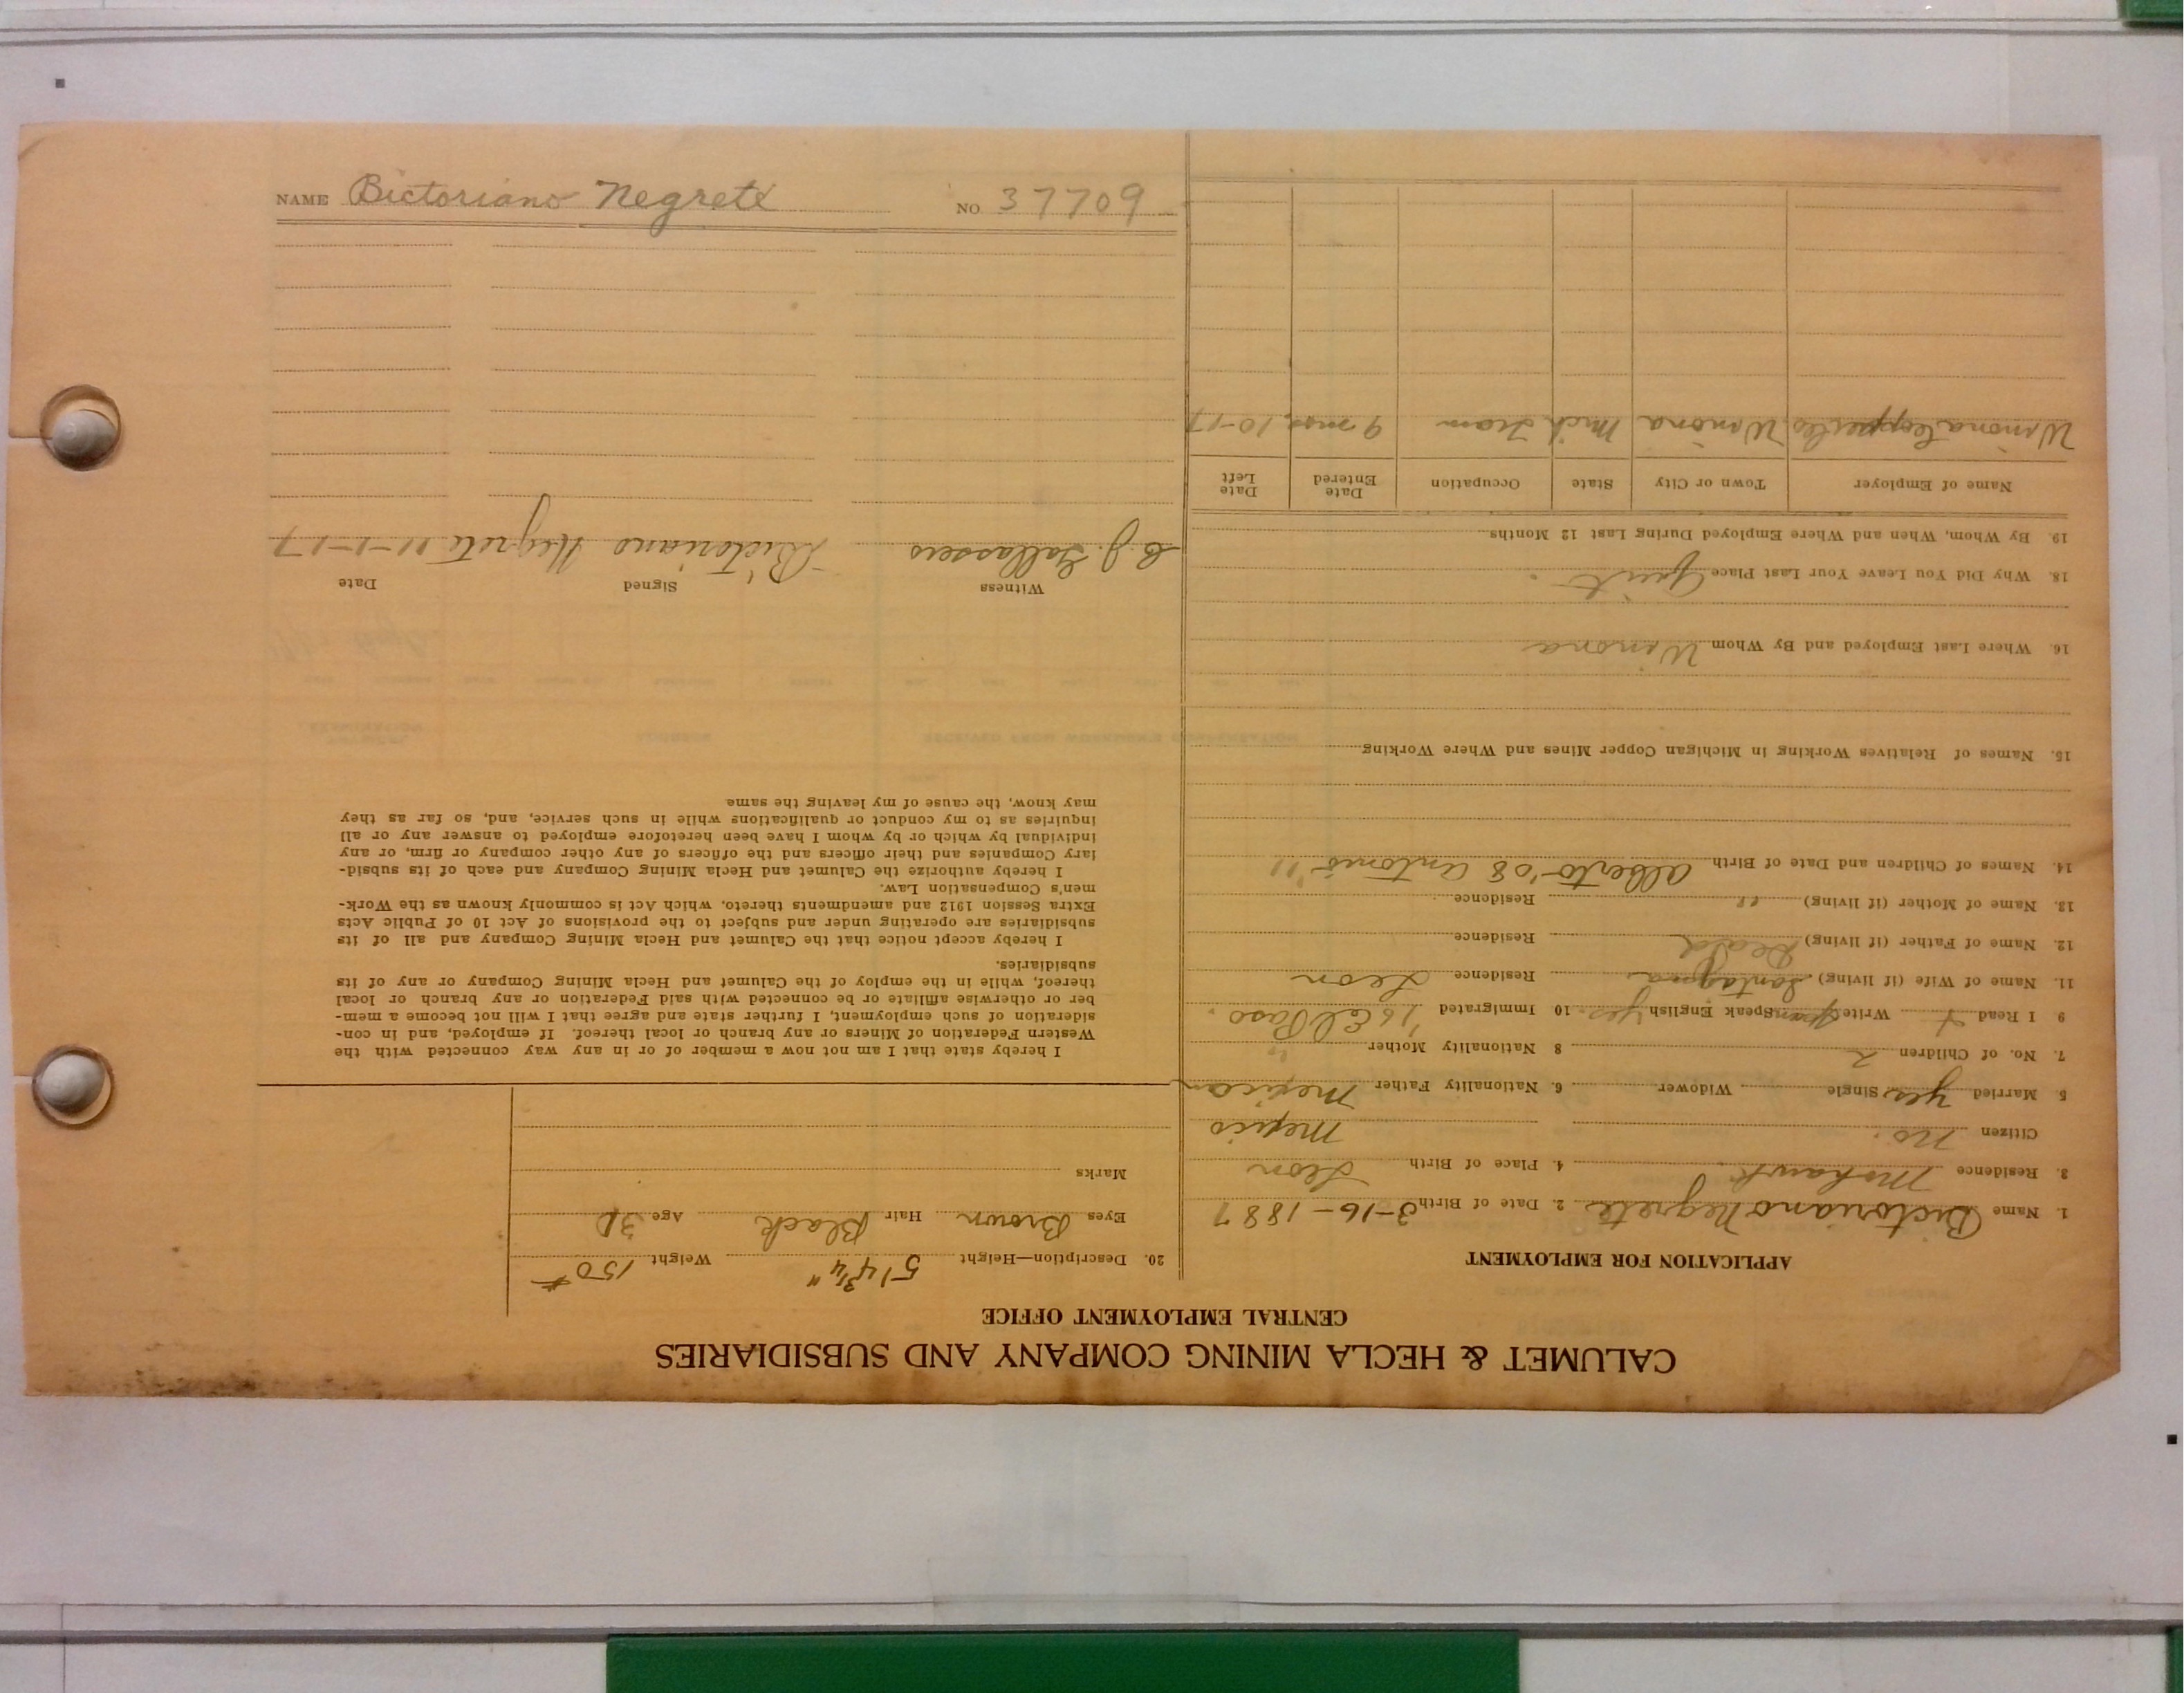 CALUMET & HECLA MINING COMPANY AND SUBSIDIARIES
CENTRAL EMPLOYMENT OFFICE
APPLICATION FOR EMPLOYMENT
1. Name Bictoriano Negrete 2. Date of Birth 3-16-1887
3. Residence Mohawk 4. Place of Birth Leon
Citizen No. Mexico
5 Married yes Single Widower 6. Nationality Father Mexican
7. No. of Children 2 8 Nationality Mother "
9 I Read Write Speak English yes 10 Immigrated '16 El Paso.
11. Name of Wife (if living) Residence Leon
12. Name of Father (if living) Dead Residence
13. Name of Mother (if living) " Residence
14. Names of Children and Date of Birth Alberto '08 Antonio '11
15. Names of Relatives Working in Michigan Copper Mines and Where Working
16. Where Last Employed and By Whom Winona
18. Why Did You Leave Your Last Place Quit.
19. By Whom, When and Where Employed During Last 12 Months
Name of Employer Town or City State Occupation Date Entered Date Left
Winona Copper Co. Winona Mich Tram 9 mos. 10-17
20. Description—Height 5' 4 3/4" Weight 150#
Eyes Brown Hair Black Age 30
Marks
I hereby state that I am not now a member of or in any way connected with the
Western Federation of Miners or any branch or local thereof. If employed, and in con-
sideration of such employment, I further state and agree that I will not become a mem-
ber or otherwise affiliate or be connected with said Federation or any branch or local
thereof, while in the employ of the Calumet and Hecla Mining Company or any of its
subsidiaries.
I hereby accept notice that the Calumet and Hecla Mining Company and all of its
subsidiaries are operating under and subject to the provisions of Act 10 of Public Acts
Extra Session 1912 and amendments thereto, which Act is commonly known as the Work-
men's Compensation Law.
I hereby authorize the Calumet and Hecla Mining Company and each of its subsid-
iary Companies and their officers and the officers of any other company or firm, or any
individual by which or by whom I have been heretofore employed to answer any or all
inquiries as to my conduct or qualifications while in such service, and, so far as they
may know, the cause of my leaving the same
Witness Signed Date
Bictoriano Negrete 11-1-17
NAME Bictoriano Negrete NO 37709